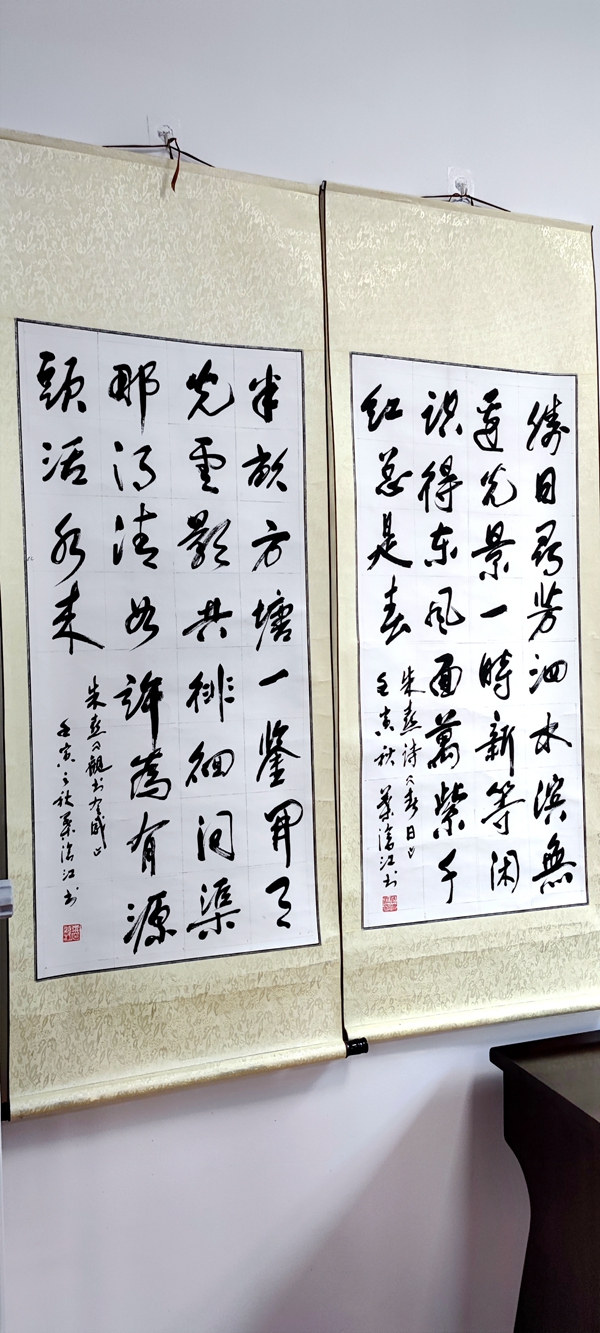 勝日尋芳泗水滨無
邊光景一時新等闲
识得东风面萬紫千
红总是春
朱熹诗《春日》
壬寅秋 葉江书
半畝方塘一鑒開天
光雲影共徘徊问渠
那得清如許為有源
頭活水来
朱熹《觀书有感》
壬寅之秋葉江书